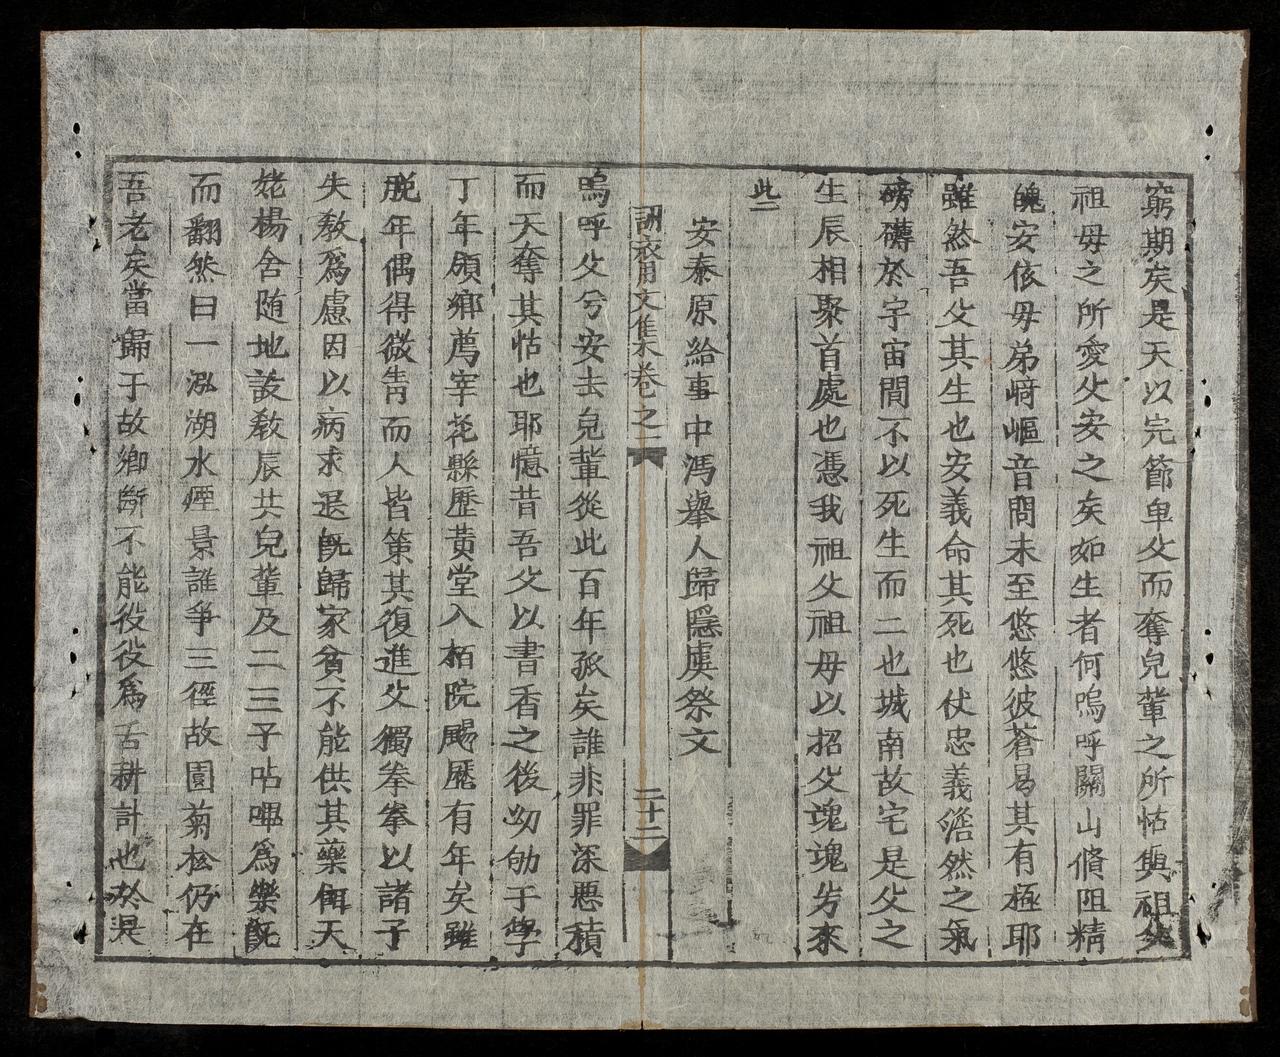 窮期矣是天以完節卑父而奪兒輩之所怙與祖父
祖毋之所愛父安之矣如生者何嗚呼關山脩阻精
魄安依毋弟﨑嶇音問未至悠悠彼蒼曷其有極耶
雖然吾父其生也安義命其死也仗忠義澹然之氣
磅礴於宇宙間不以死生而二也城南故宅是父之
生辰相聚首處也憑我祖父祖毋以招父魂魂兮來
此
安泰原給事中馮舉人歸隱虞祭文
詞衣用文集卷之二 二十二
嗚呼父兮安去兒輩從此百年孤矣誰非罪深惡積
而天奪其怙也耶憶昔吾父以書香之後劬劬于學
丁年領鄉薦宰花縣歷黃堂入栢院颺歷有年矣雖
脫年偶得微眚而人皆策其復進父獨拳拳以諸子
失教爲慮因以病求退旣歸家貧不能供其藥餌天
姥楊舍随地設教辰共兒輩及二三子呫嗶爲樂旣
而翻然曰一泓湖水煙景誰爭三徑故園菊松仍在
吾老矣當歸于故鄉斷不能役役爲舌耕計也於是